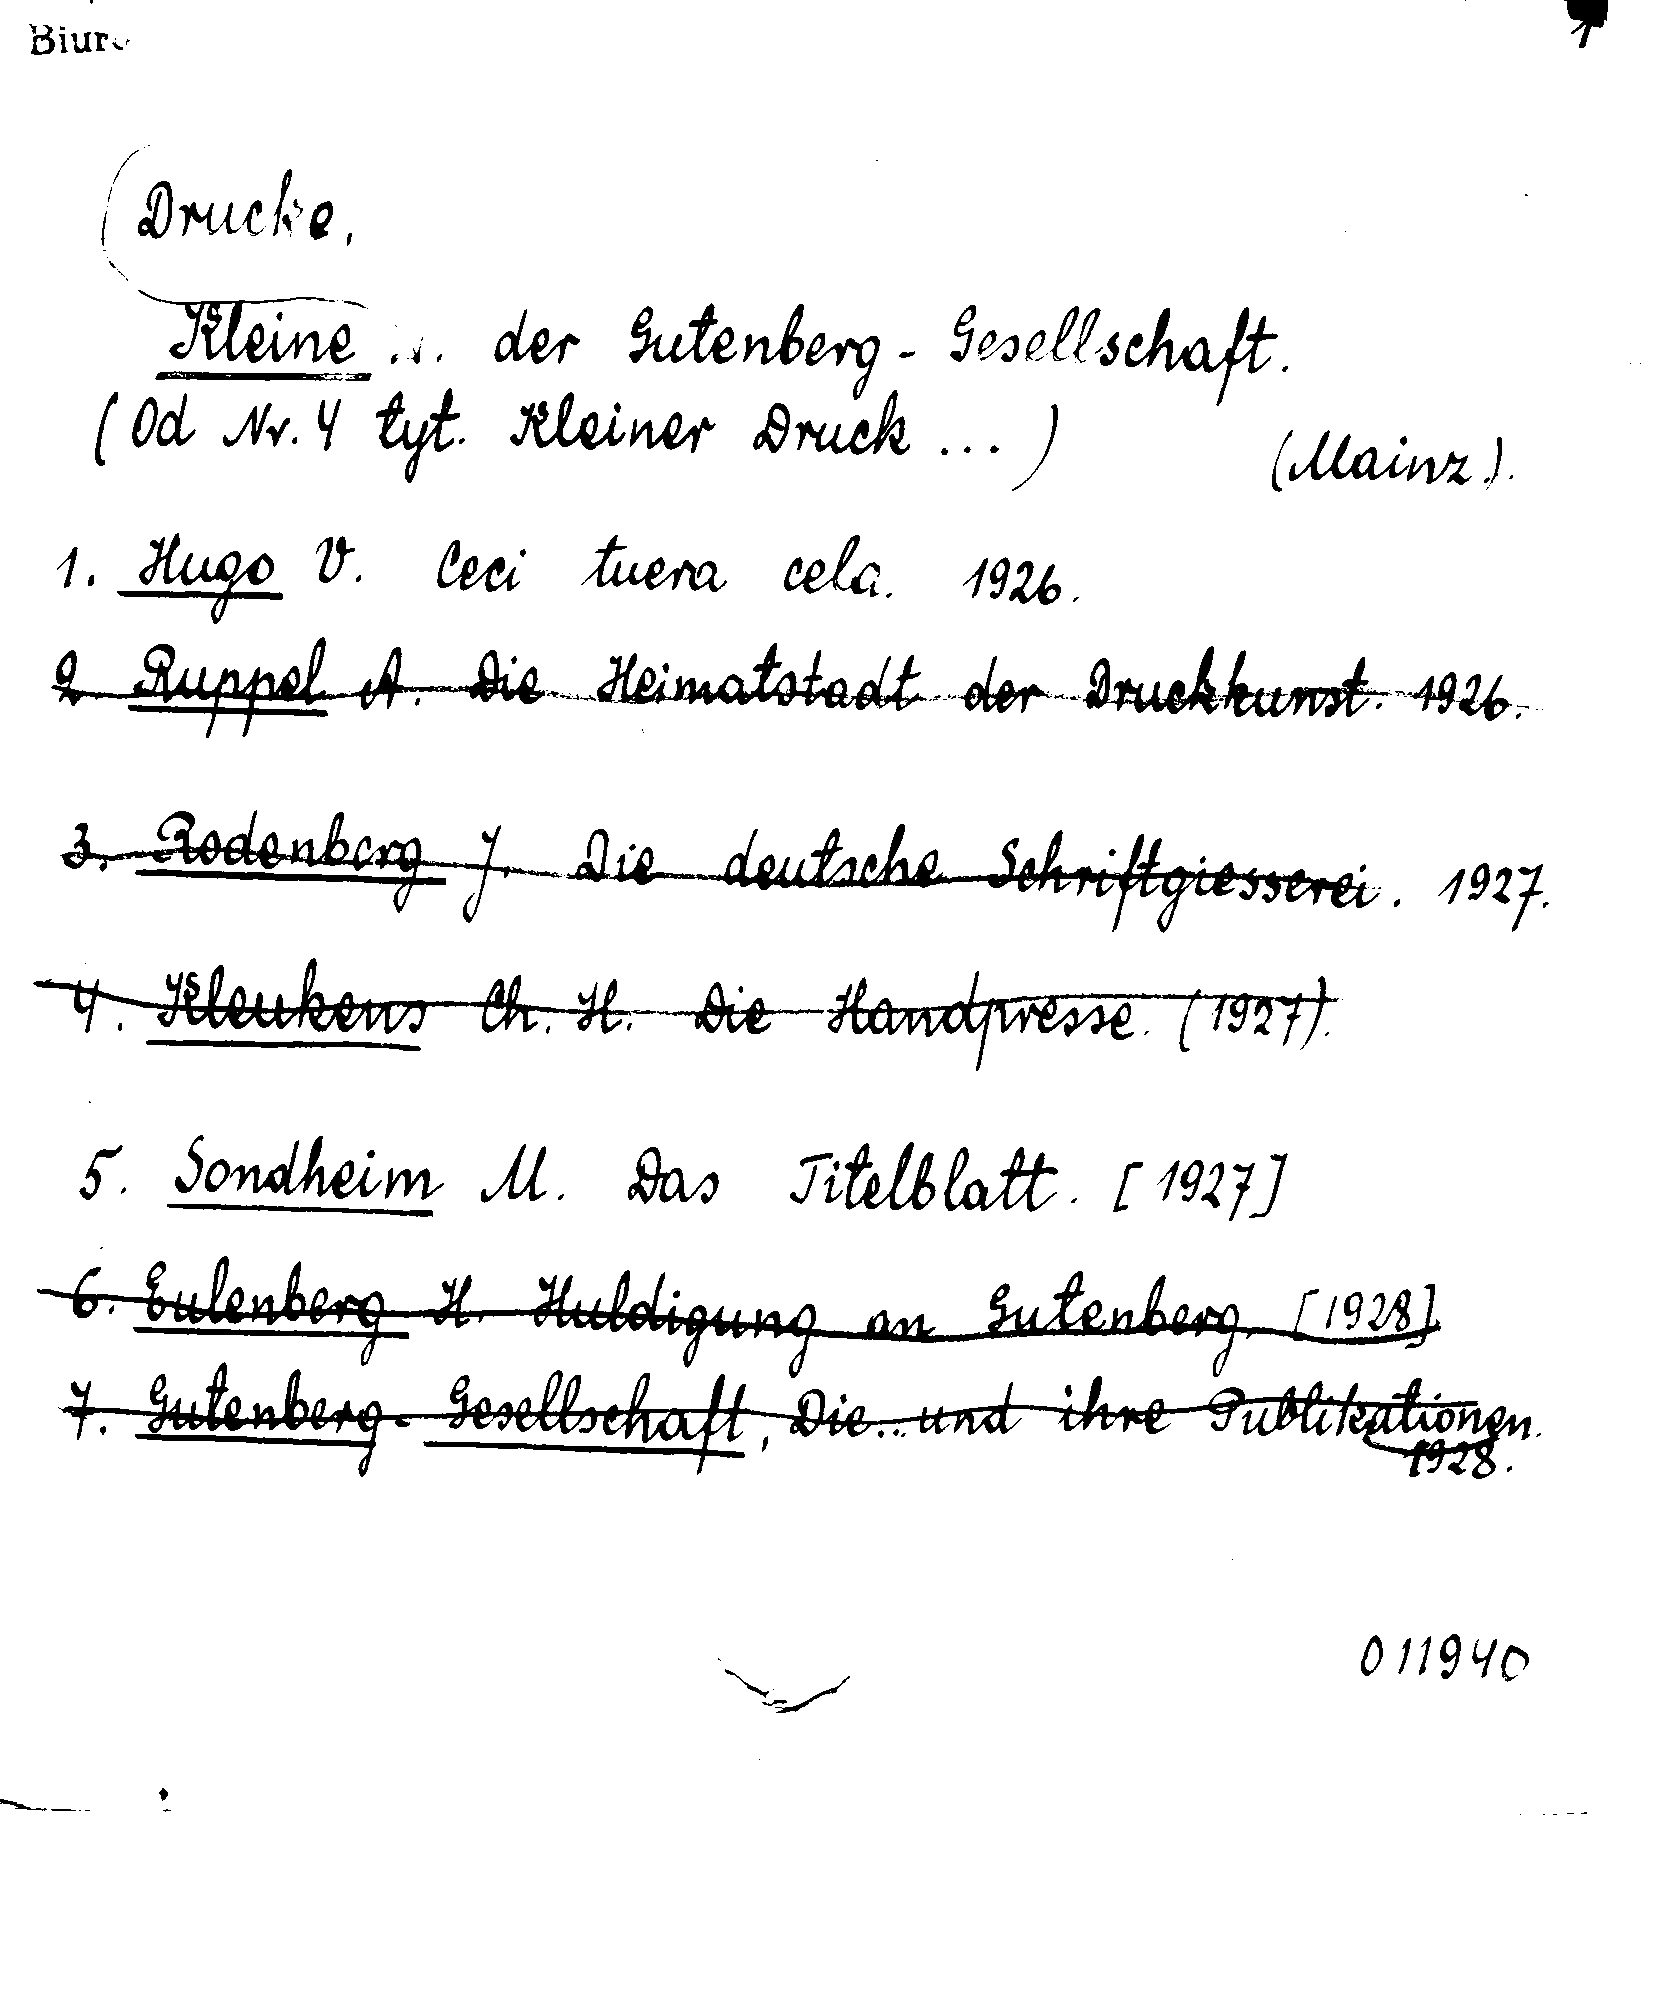 1
Drucke.
Kleine ... der Gutenberg-Gesellschaft.
(Od Nr. 4 tyt. Kleiner Druck ...)
(Mainz).
1. Hugo V. Ceci tuera cela. 1926.
2 Ruppel A. Die Heimatstadt der Druckkunst. 1926.
3. Rodenberg J. Die deutsche Schriftgiesserei. 1927.
4. Kleukens Ch. H. Die Handpresse. (1927).
5. Sondheim M. Das Titelblatt. [1927]
6. Eulenberg H. Huldigung an Gutenberg. [1928]
7. Gutenberg-Gesellschaft, Die .. und ihre Publikationen.
1928.
011940